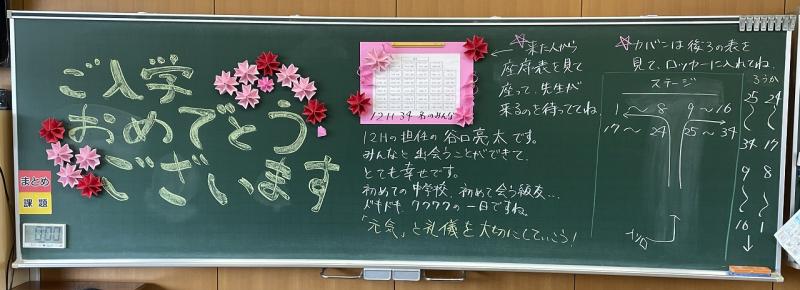 ご入学
おめでとう
ございます
まとめ
課題
12H 34名のみんな
☆来た人から
座席表を見て
座って、先生が
来るのを待っててね
12Hの担任の谷口亮太です。
みんなと出会うことができて、
とても幸せです。
初めての中学校、初めて会う級友…
ドキドキ、ワクワクの一日ですね。
「元気」と礼儀を大切にしていこう!
☆カバンは後ろの表を
見て、ロッカーに入れてね。
ステージ
1〜8 9〜16
17〜24 25〜34
ろうか
25 24
34 17
9 8
16 1